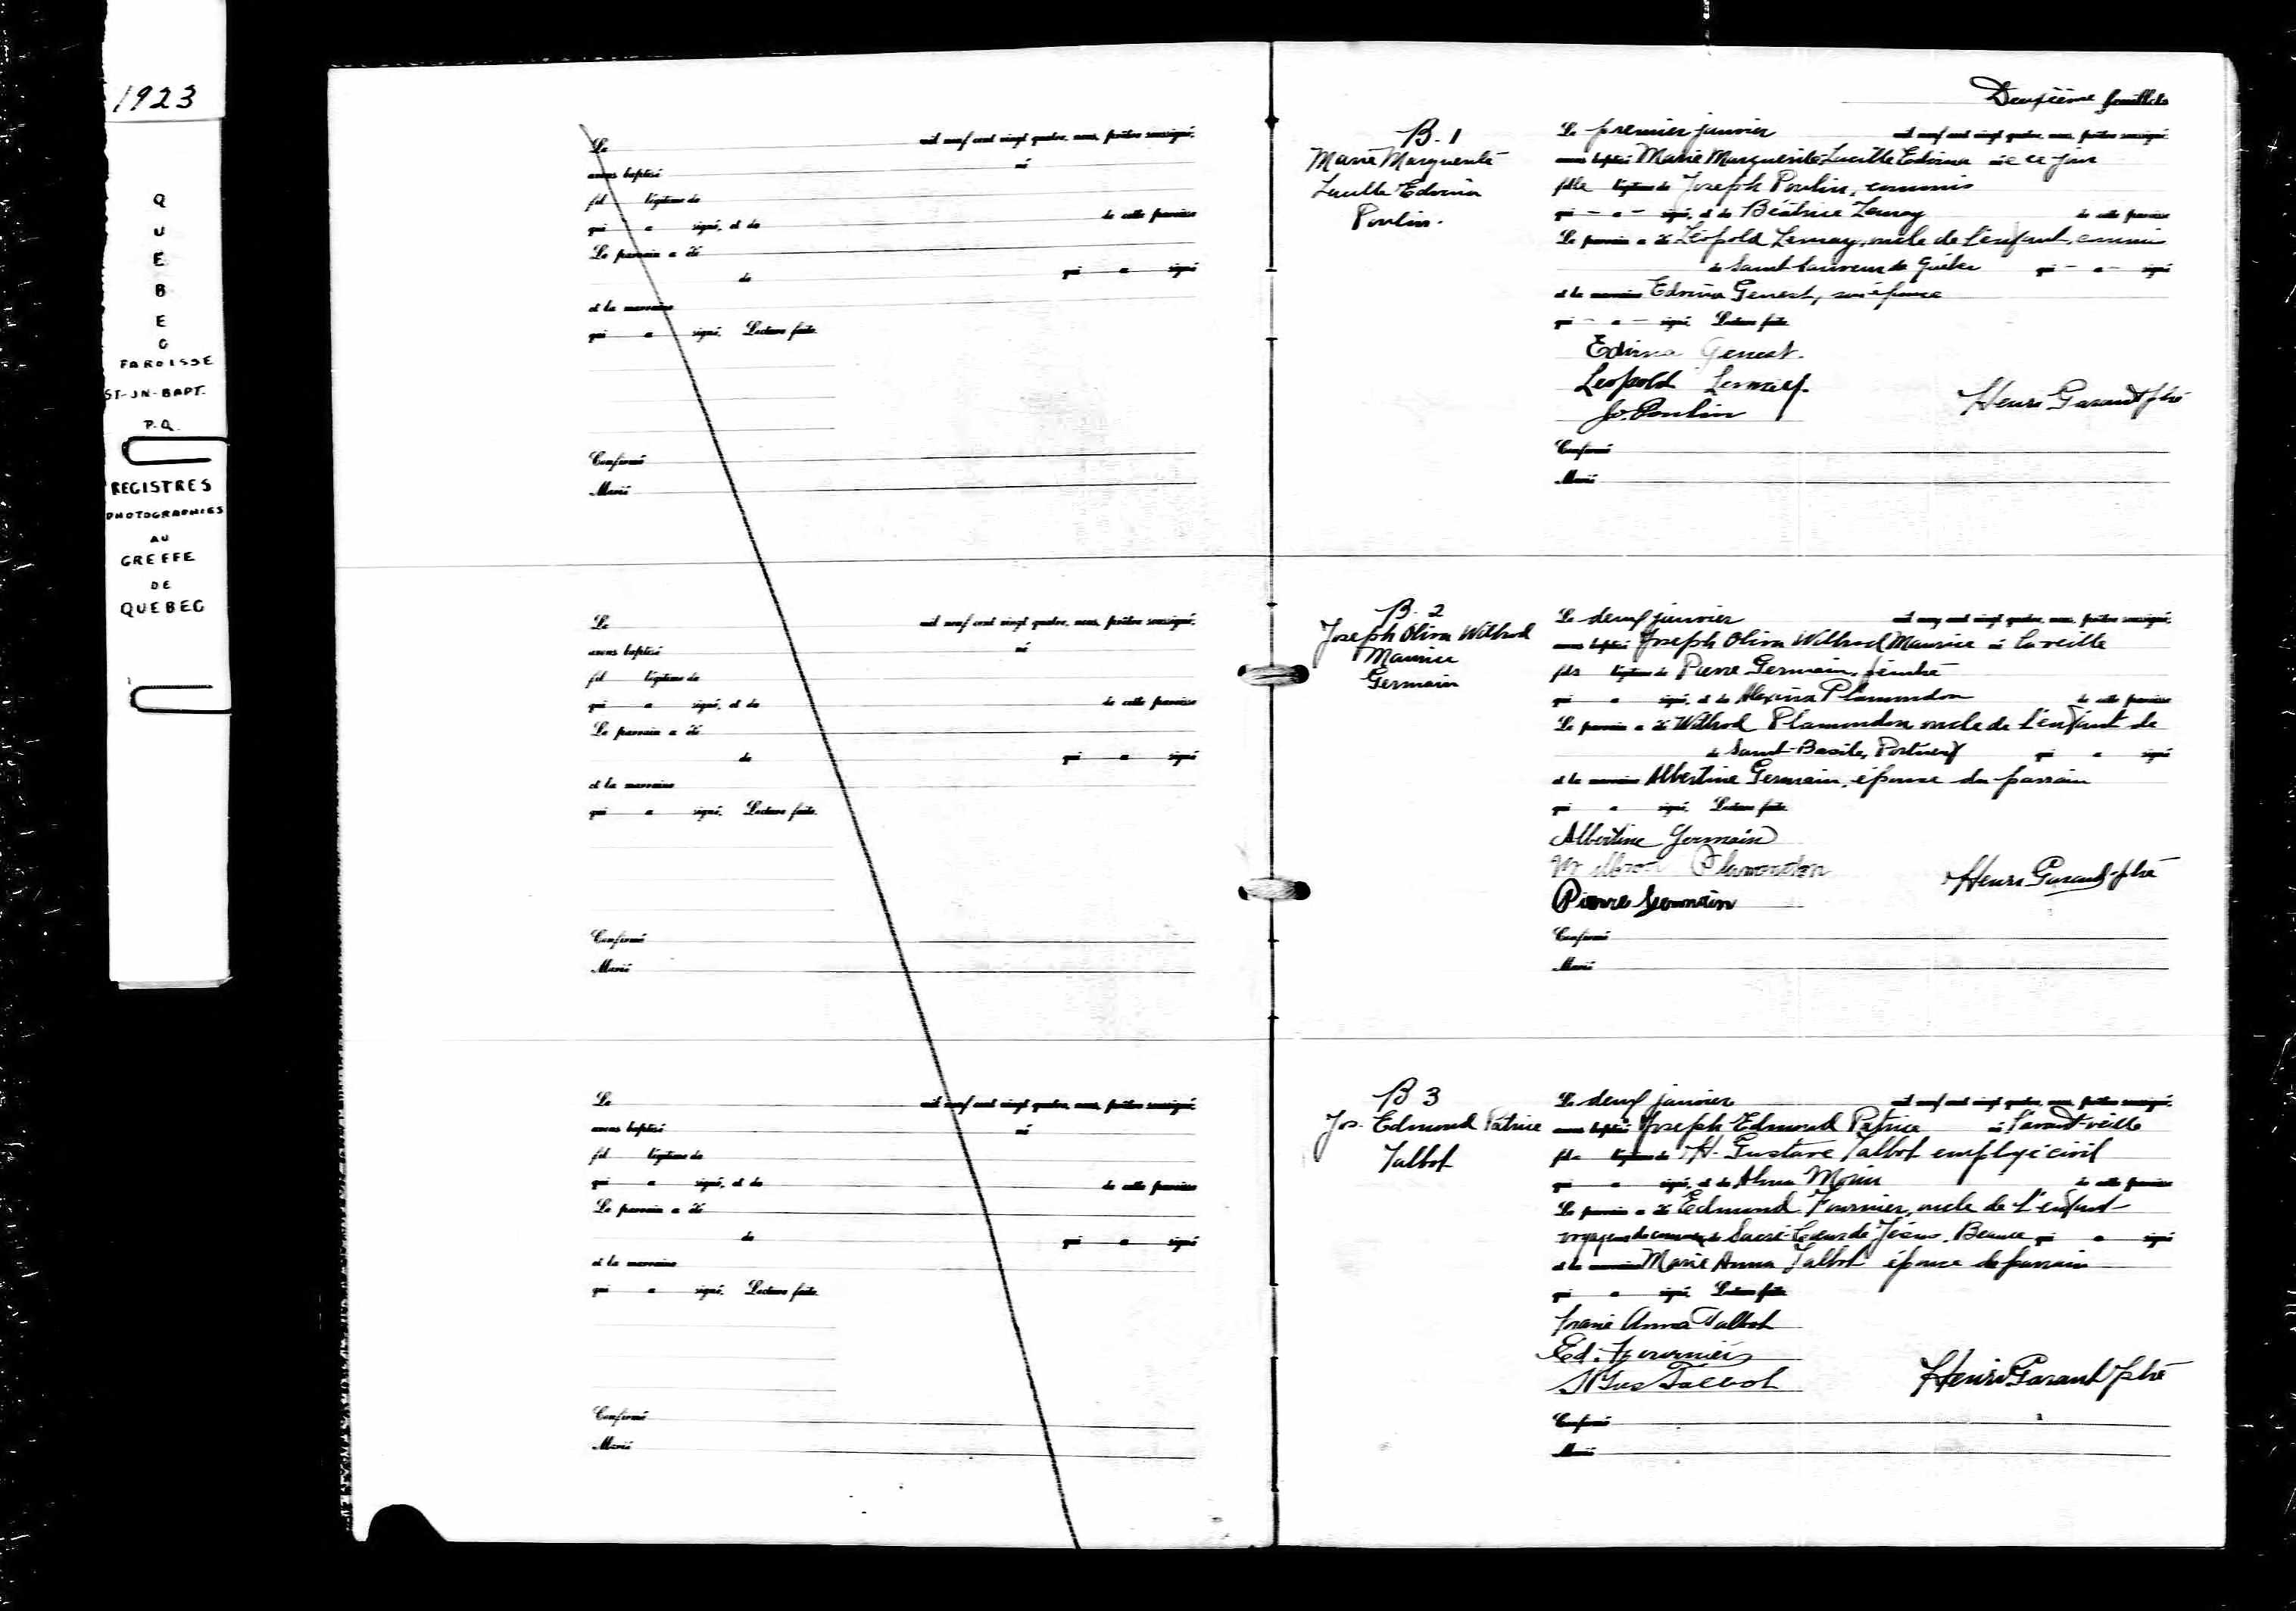 1923
Q
U
E
B
E
C
PAROISSE
ST-JN-BAPT.
P.Q.
REGISTRES
PHOTOGRAPHIES
AU
GREFFE
DE
QUEBEC
Le mil neuf cent vingt quatre, nous, prêtre soussigné,
avons baptisé né
fil légitime de
qui a signé, et de de cette paroisse
Le parrain a été
de qui a signé
et la marraine
qui a signé. Lecture faite.
Confirmé
Marié
Le mil neuf cent vingt quatre, nous, prêtre soussigné,
avons baptisé né
fil légitime de
qui a signé, et de de cette paroisse
Le parrain a été
de qui a signé
et la marraine
qui a signé. Lecture faite.
Confirmé
Marié
Le mil neuf cent vingt quatre, nous, prêtre soussigné,
avons baptisé né
fil légitime de
qui a signé, et de de cette paroisse
Le parrain a été
de qui a signé
et la marraine
qui a signé. Lecture faite.
Confirmé
Marié
Deuxième feuillets
B. 1
Marie Marguerite
Lucille Edvina
Poulin.
Le premier janvier mil neuf cent vingt quatre, nous, prêtre soussigné,
avons baptisé Marie Marguerite Lucille Edvina née ce jour
fille légitime de Joseph Poulin, commis
qui - a - signé, et de Béatrice Lemay de cette paroisse
Le parrain a été Léopold Lemay, oncle de l'enfant, commis
de Saint-Sauveur de Québec qui - a - signé
et la marraine Edvina Genest, son épouse
qui - a - signé. Lecture faite.
Edvina Genest.
Leopold Lemay.
Jo. Poulin
Henri Garant ptre
Confirmé
Marié
B. 2
Joseph Oliva Wilbrod
Maurice
Germain
Le deux janvier mil neuf cent vingt quatre, nous, prêtre soussigné,
avons baptisé Joseph Oliva Wilbrod Maurice né la veille
fils légitime de Pierre Germain, peintre
qui a signé, et de Alexina Plamondon de cette paroisse
Le parrain a été Wilbrod Plamondon oncle de l'enfant de
de Saint-Basile, Portneuf qui a signé
et la marraine Albertine Germain, épouse du parrain
qui a signé. Lecture faite.
Albertine Germain
Wilbrod Plamondon
Pierre Germain
Henri Garant ptre
Confirmé
Marié
B 3
Jos. Edmond Patrice
Talbot
Le deux janvier mil neuf cent vingt quatre, nous, prêtre soussigné,
avons baptisé Joseph Edmond Patrice né l'avant-veille
fils légitime de H. Gustave Talbot employé civil
qui a signé, et de Alma Morin de cette paroisse
Le parrain a été Edmond Fournier, oncle de l'enfant
voyageur de commerce de Sacré-Coeur de Jésus, Beauce qui a signé
et la marraine Marie Anna Talbot épouse du parrain
qui a signé. Lecture faite.
Marie Anna Talbot
Ed. Fournier
H Gus Talbot
Henri Garant ptre
Confirmé
Marié